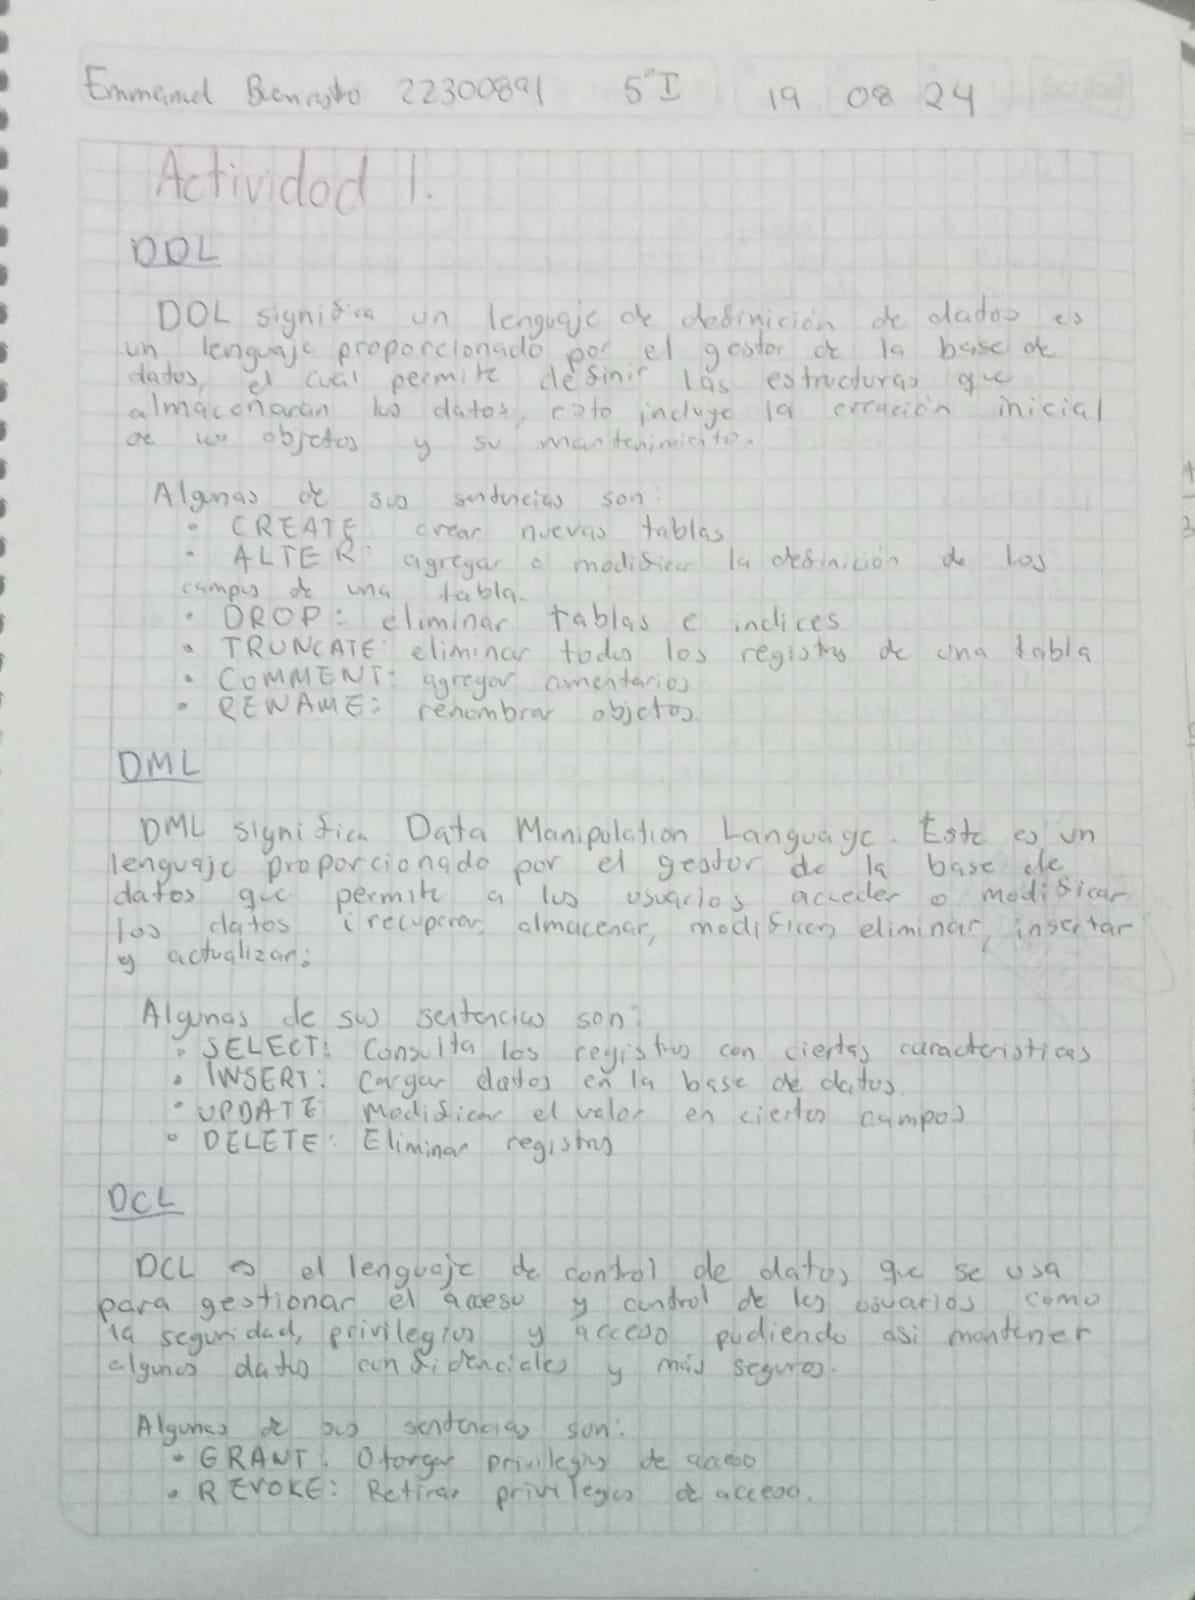 Emmanuel Benavto 22300891 5°I 19 08 24
Actividad 1.
DDL
DDL significa un lenguaje de definición de datos es
un lenguaje proporcionado por el gestor de la base de
datos, el cual permite definir las estructuras que
almacenarán los datos, esto incluye la creación inicial
de los objetos y su mantenimiento.
Algunas de sus sentencias son:
• CREATE: crear nuevas tablas
• ALTER: agregar o modificar la definición de los
campos de una tabla.
• DROP: eliminar tablas e indices
• TRUNCATE: eliminar todos los registros de una tabla
• COMMENT: agregar comentarios
• RENAME: renombrar objetos.
DML
DML significa Data Manipulation Language. Este es un
lenguaje proporcionado por el gestor de la base de
datos que permite a los usuarios acceder o modificar
los datos (recuperar, almacenar, modificar, eliminar, insertar
y actualizar:
Algunas de sus sentencias son:
• SELECT: Consulta los registros con ciertas caracteristicas
• INSERT: Cargar datos en la base de datos.
• UPDATE: Modificar el valor en ciertos campos
• DELETE: Eliminar registros
DCL
DCL es el lenguaje de control de datos que se usa
para gestionar el acceso y control de los usuarios como
la seguridad, privilegios y acceso pudiendo asi mantener
algunos datos confidenciales y más seguros.
Algunas de sus sentencias son:
• GRANT: Otorgar privilegios de acceso
• REVOKE: Retirar privilegios de acceso.